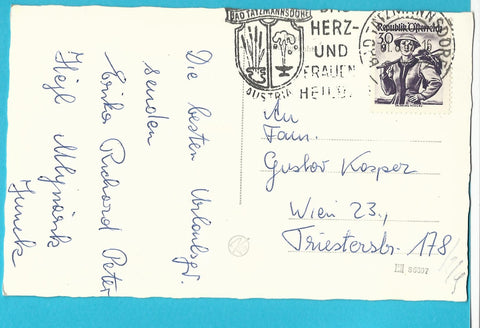 BAD TATZMANNSDORF
DAS
HERZ-
UND
FRAUEN
HEILB
AUSTRIA
Republik Österreich
30
BAD TATZMANNSDORF
Die besten Urlaubsgr.
senden
Erika Richard Peter
Junek
An
Fam.
Gustav Kasper
Wien 23.,
Triesterstr. 178